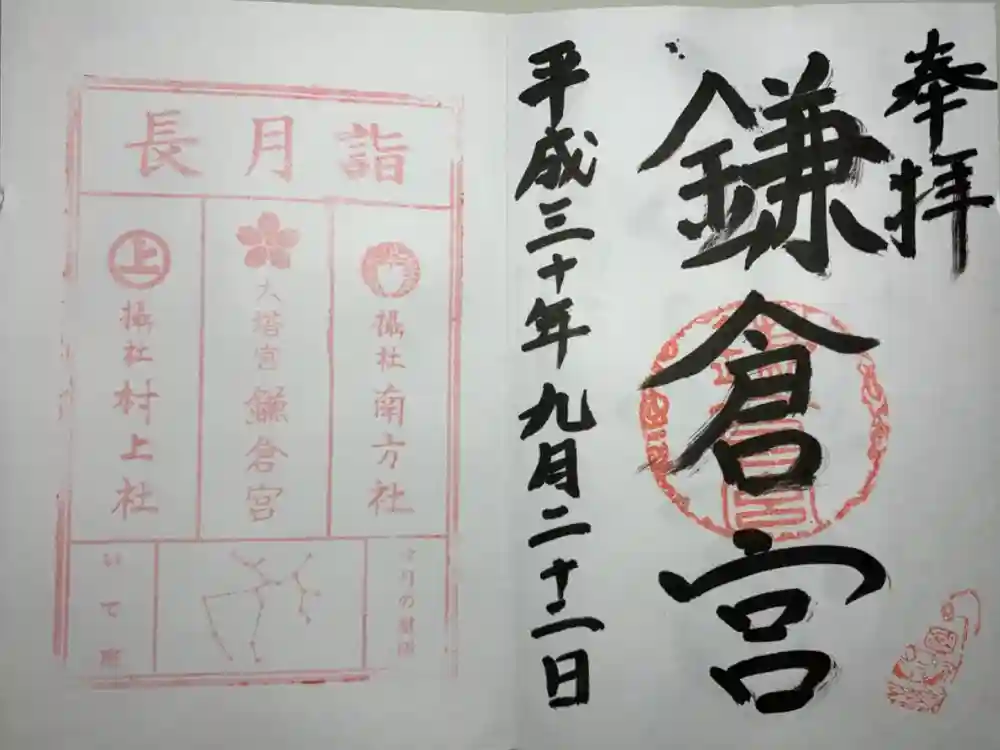 奉拝
鎌倉宮
平成三十年九月二十二日
長月詣
摂社南方社
大塔宮鎌倉宮
摂社村上社
今月の星座
いて座